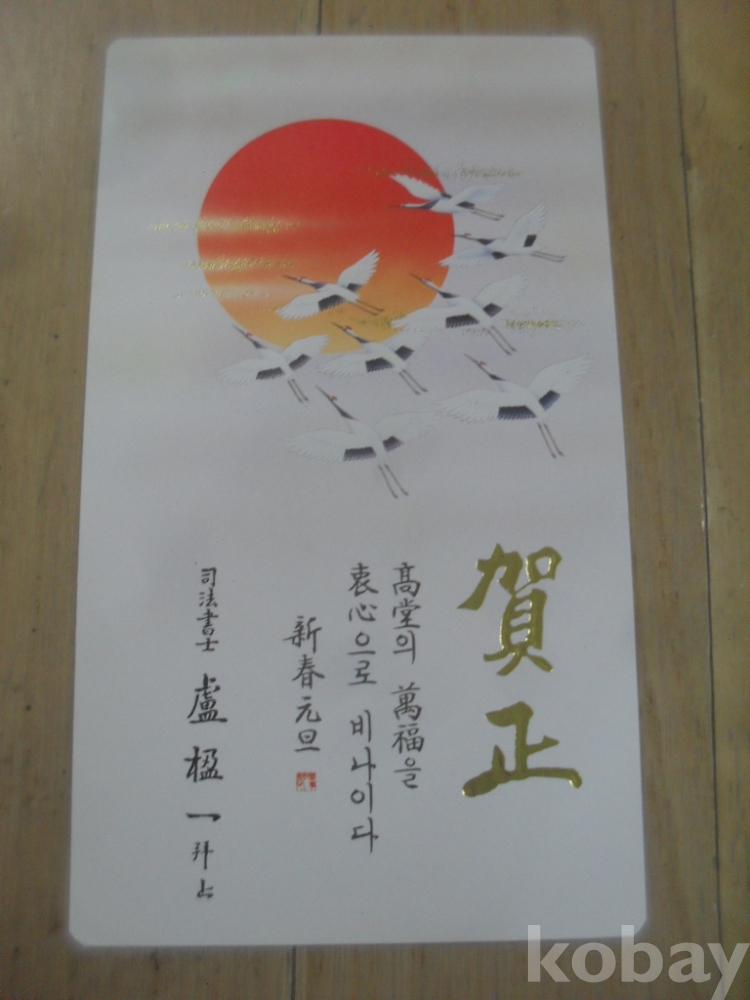 賀正
高堂의 萬福을
衷心으로 비나이다
新春元旦
司法書士 盧楹一 拜上
kobay